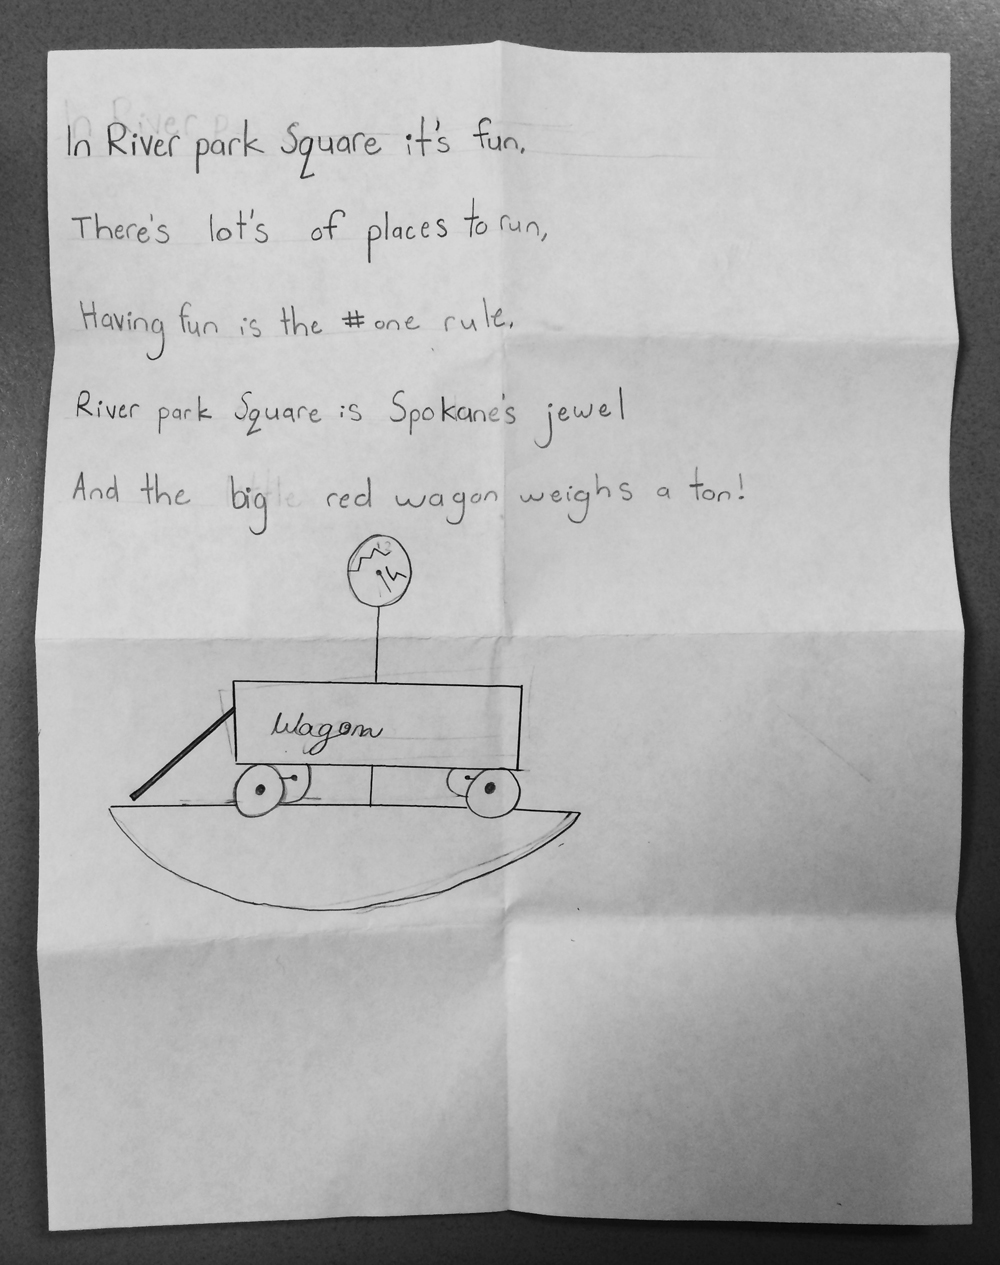 In River park Square it's fun.
There's lot's of places to run,
Having fun is the #one rule.
River park Square is Spokane's jewel
And the big red wagon weighs a ton!
Wagon